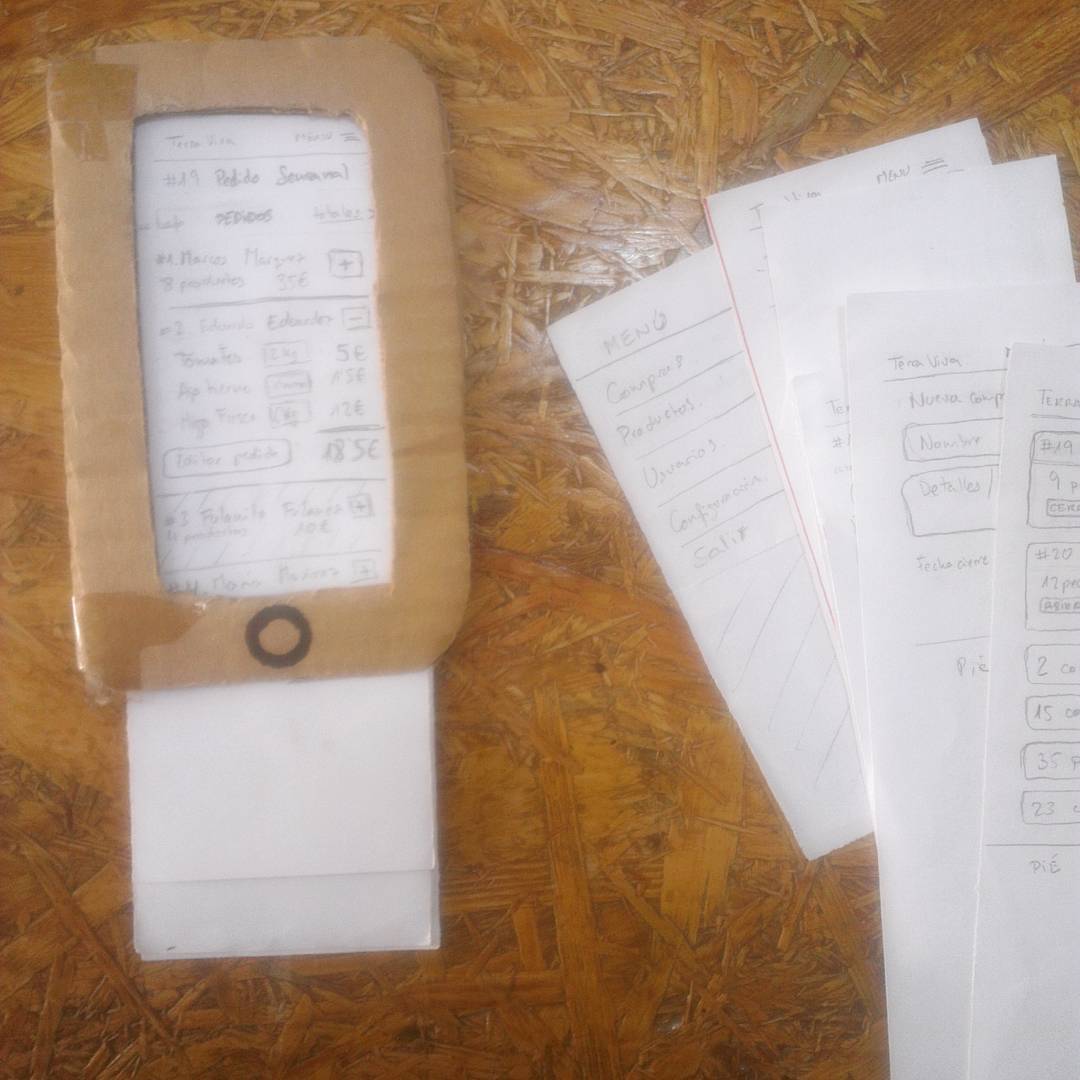 Terra Viva MENÚ
#19 Pedido Semanal
PEDIDOS totales >
#1. Marcos Marquez +
8 productos 35€
#2. Eduardo Eduardez -
Tomates 2 kg 5€
1'5€
Higo Fresco 1 kg 12€
Editar pedido 18'5€
#3 Fulanito Fulanez +
4 productos 10€
#4. +
MENÚ
Compras.
Productos.
Usuarios.
Configuración.
Salir
MENU
Terra Viva.
Nueva comp
Nombre
Detalles
Fecha cierre
Pié
TERRA
#19
9 p
CERR
#20
12 pe
ABIER
2 co
15 co
35 p
23 c
PIÉ